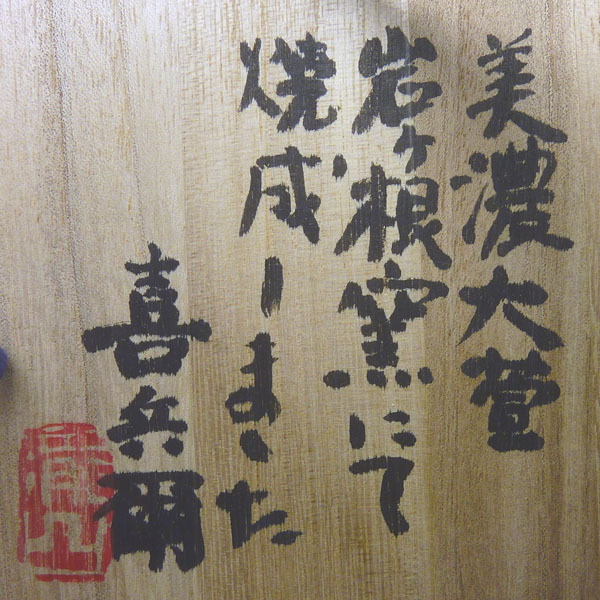 美濃大萱
岩ヶ根窯にて
焼成しました
喜兵爾